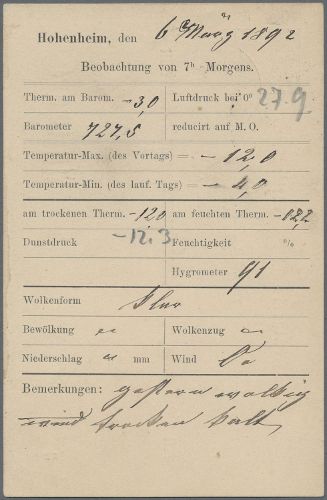 Hohenheim, den 6 März 1892
Beobachtung von 7h Morgens.
Therm. am Barom. -3,0 Luftdruck bei 0° 27.9
Barometer 727,5 reducirt auf M. O.
Temperatur-Max. (des Vortags) = -12,0
Temperatur-Min. (des lauf. Tags) = -4,0
am trockenen Therm. -12,0 am feuchten Therm. -12,2
Dunstdruck -12,3 Feuchtigkeit %
Hygrometer 91
Wolkenform klar
Bewölkung Wolkenzug
Niederschlag mm Wind
Bemerkungen: gestern wolkig
wind trocken kalt